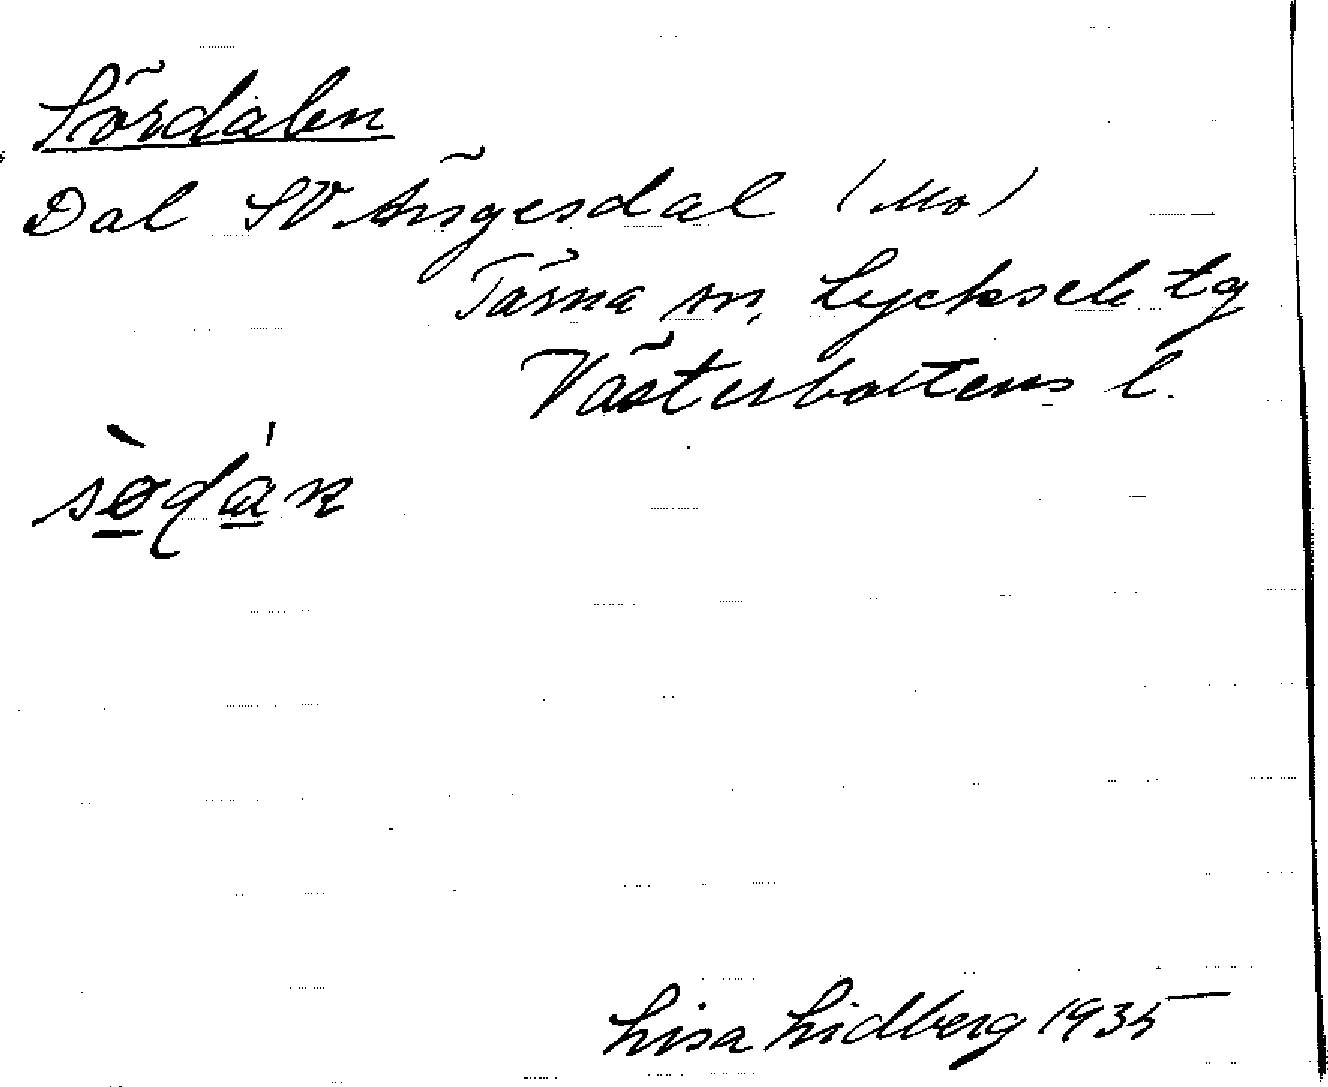 Sördalen
Dal SV Ängesdal (Mo)
Tärna sn, Lycksele tg
Västerbottens l.
sò̱dá̱n
Lisa Lidberg 1935